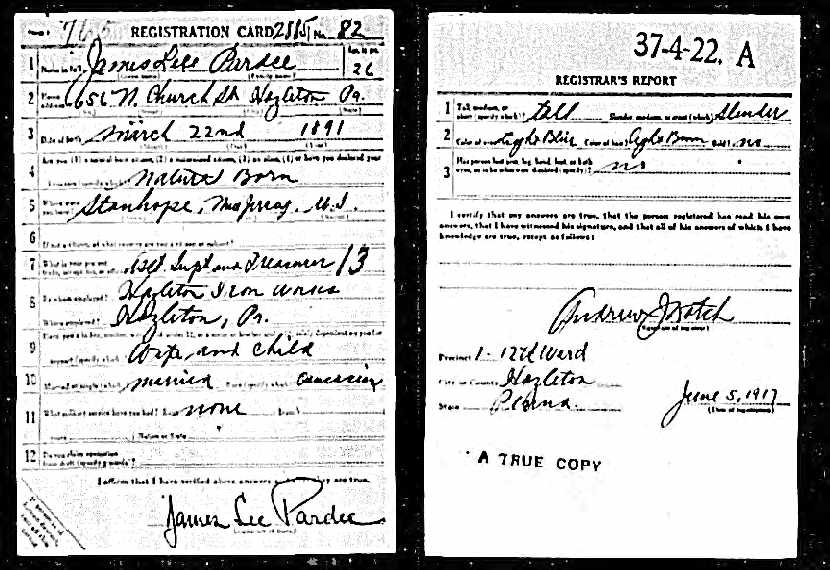 REGISTRATION CARD 2515 No. 82
Age, in yrs.
1 Name in full James Lee Pardee 26
(Given name) (Family name)
2 Home address 656 N. Church St Hazleton Pa.
3 Date of birth March 22nd 1891
Are you (1) a natural born citizen, (2) a naturalized citizen, (3) an alien, (4) or have you declared your
4 intention (specify which)? Natural Born
5 Stanhope, New Jersey, U.S.
6 If not a citizen, of what country are you a citizen or subject?
7 What is your present trade, occupation, or office? Asst. Supt and Treasurer 13
8 By whom employed? Hazleton Iron Works
Where employed? Hazleton, Pa.
9 support (specify which)? Wife and Child
10 Married or single (which)? married Race (specify which)? Caucasian
11 What military service have you had? Rank none
years Nation or State
12 Do you claim exemption from draft (specify grounds)?
I affirm that I have verified above answers and that they are true.
James Lee Pardee
37-4-22. A
REGISTRAR'S REPORT
1 Tall, medium, or short (specify which)? tall Slender, medium, or stout (which)? Slender
2 Color of eyes? Light Blue Color of hair? Light Brown Bald? no
3 Has person lost arm, leg, hand, foot, or both eyes, or is he otherwise disabled (specify)? no
I certify that my answers are true, that the person registered has read his own
answers, that I have witnessed his signature, and that all of his answers of which I have
knowledge are true, except as follows:
Andrew J
(Signature of registrar)
Precinct 1 - 12th Ward
City or County Hazleton
State Penna. June 5, 1917
(Date of registration)
A TRUE COPY